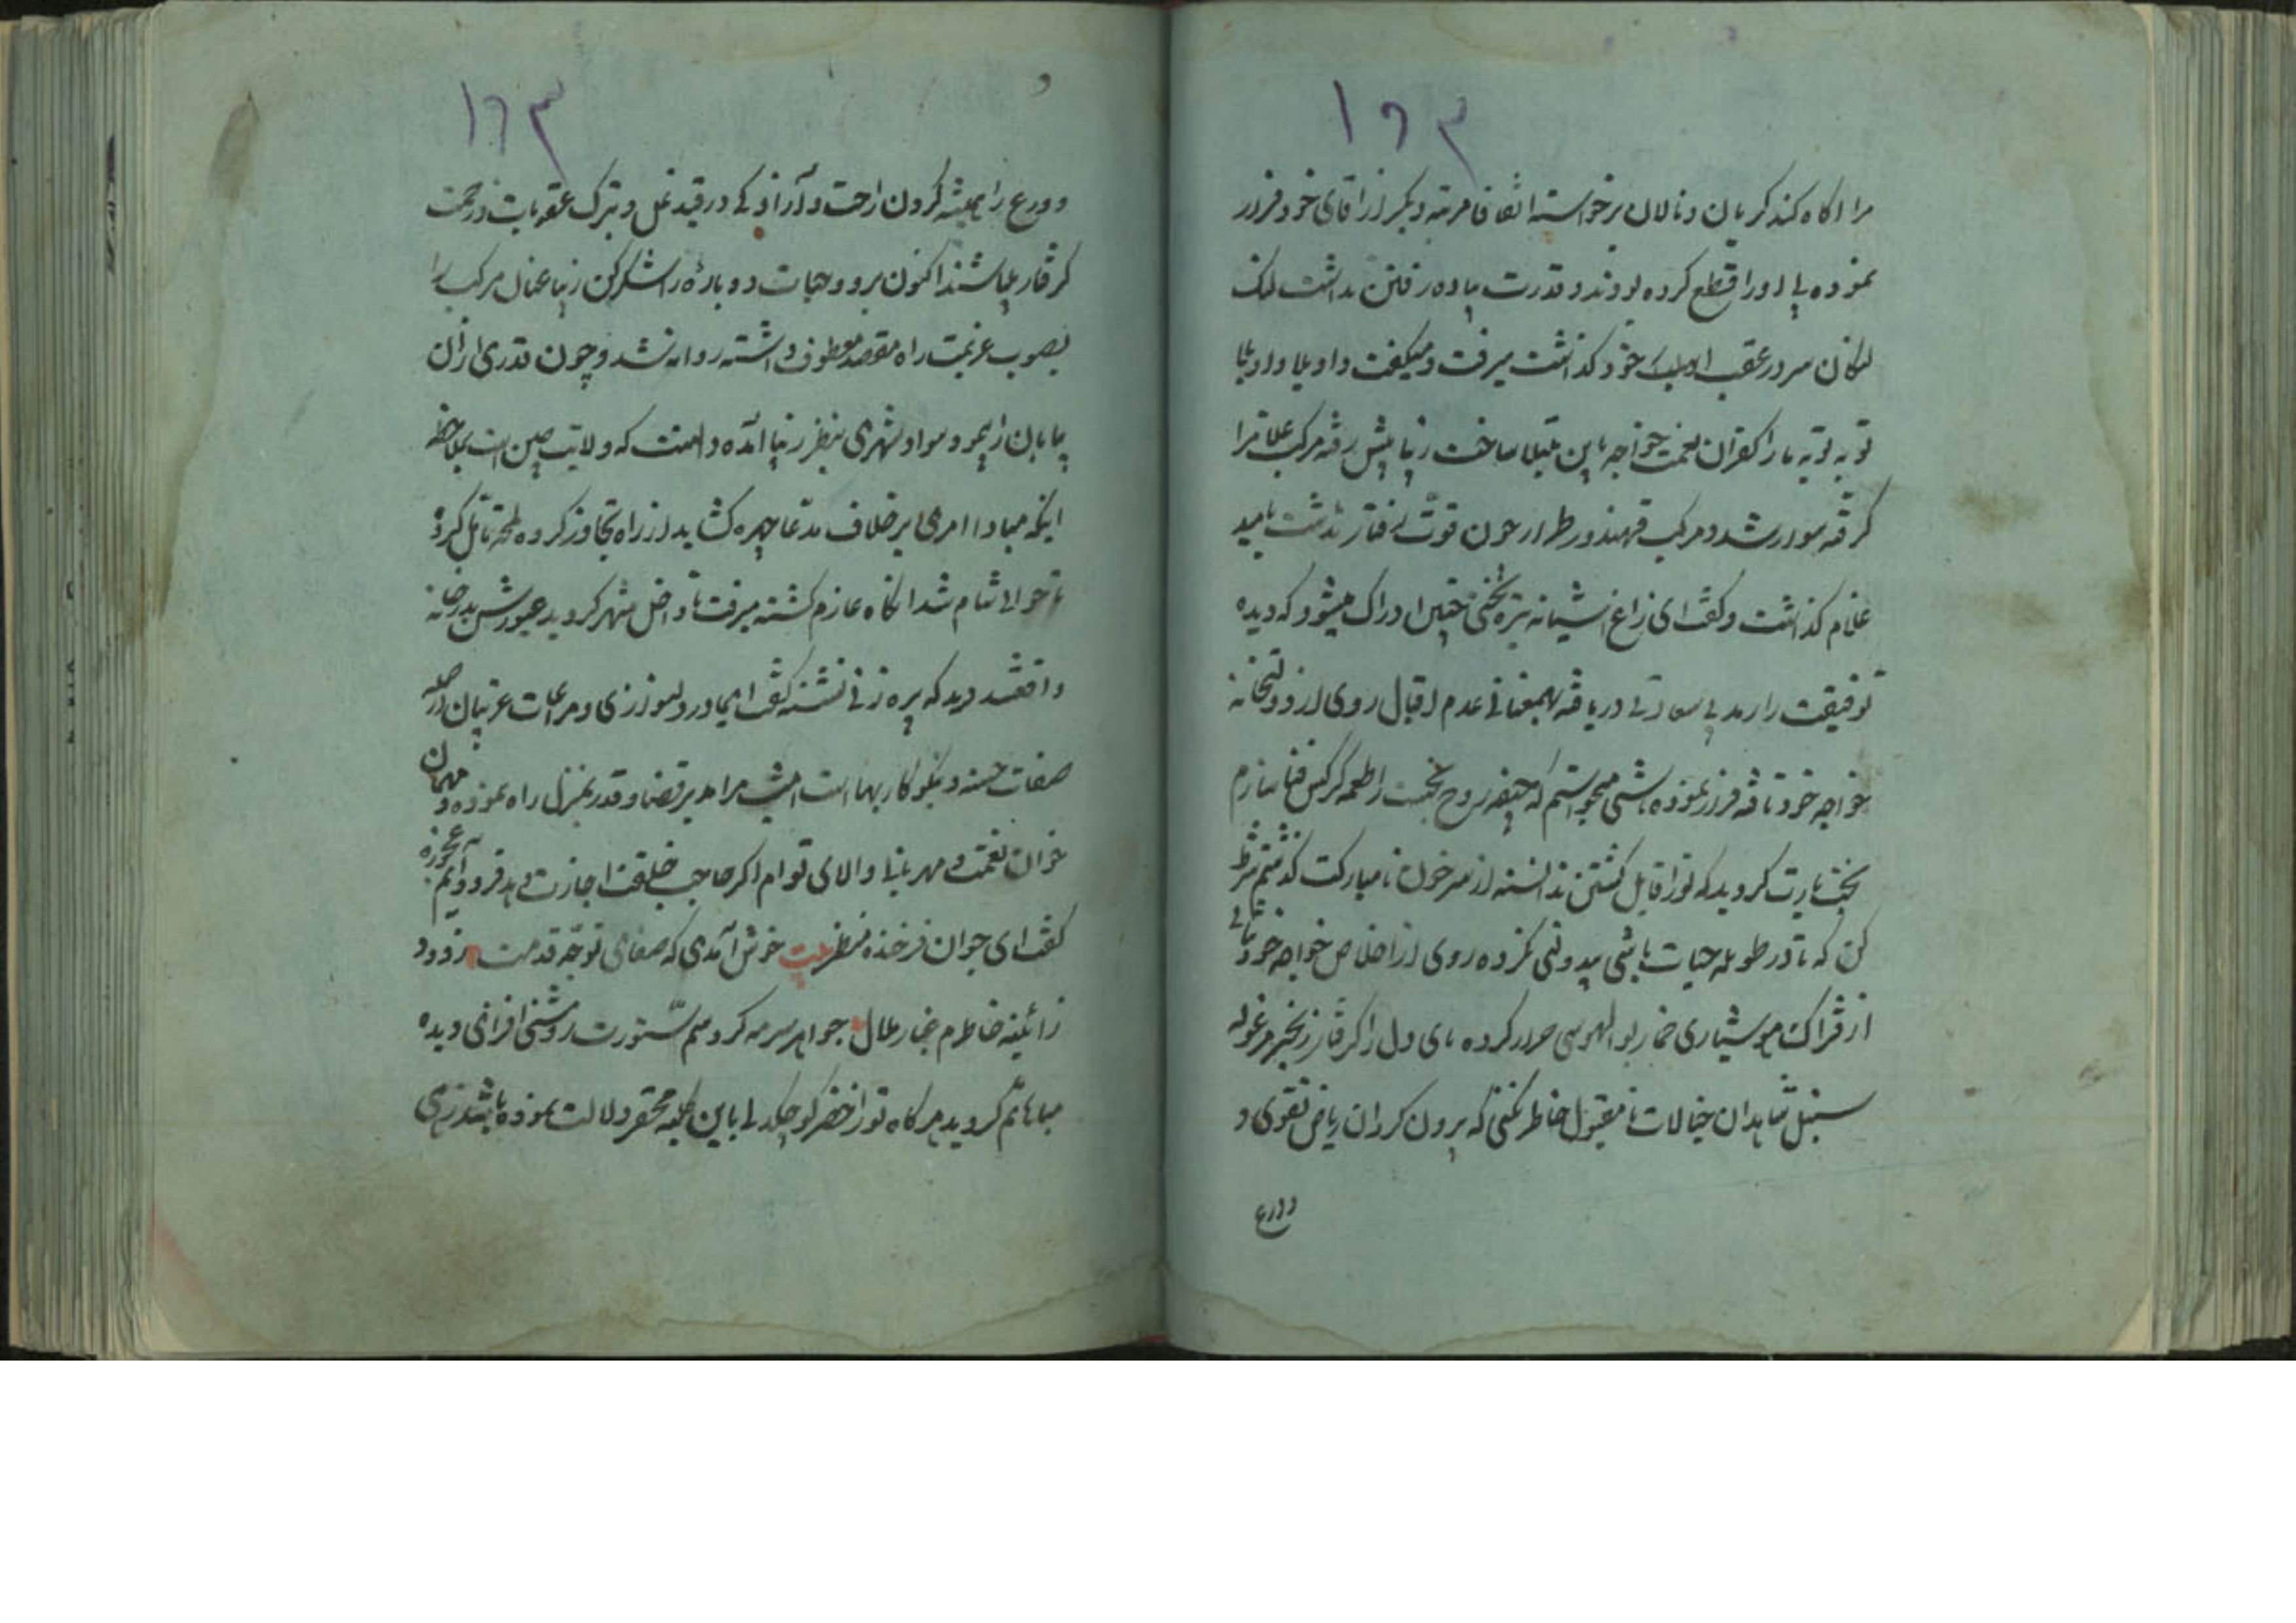 ۱۶۳
مرا اکاه کند کریان و نالان برخواسته اتفاقا مرتبه دیکر از اقای خود فرار
نموده پا اورا قطع کرده بودند و قدرت پیاده رفتن نداشت لنک
لنکان سر در عقب خود کذاشت میرفت و میکفت واویلا واویلا
توبه توبه مارا کفران نعمت خواجه باین بلیه ساخت زیبا پیش رفته مرکب غلامرا
کرفته سوار شد و مرکب چون قوت رفتار نداشت بامید
غلام کذاشت و کفت ای زاغ اشیانه تیره بختی چنین ادراک میشود که دیده
توفیقت را رمد بی سعادتی دریافته بهمعنانی عدم اقبال روی از دولتخانه
خواجه خود تافته فرار نموده باشی میخواستم که جیفه روح نجست را طعمه کرکس فنا سازم
بختت یارت کردید که تورا قابل کشتن ندانسته از سر خون نامبارکت کذشتم شرط
کن که تا در طویله حیات باشی بیدولتی نکرده روی از اخلاص خواجه خود نتابی
از فتراک هوشیاری خمار بوالهوسی کرده پای دل را کرفتار زنجیر مرغوله
سنبل شاهدان خیالات نامقبول خاطر نکنی که بیرون کردان ریاض تقوی و
وورع
۱۶۳
و ورع را همیشه کردون راحت و آزادکی در قید عمل و بترک عقوبات زحمت
کرفتار میباشند اکنون برو و حیات دوباره را شکر کن زیبا عنان مرکب را
بصوب عزیمت راه مقصد معطوف داشته روانه شد و چون قدری ازان
بیابان را پیمود سواد شهری بنظر زیبا آمده دانست که ولایت چین است بملاحظه
اینکه مبادا امری برخلاف مدعا چهره کشاید از راه تجاوز کرده لمحه تامل کرد
تا حوالی شام شد انکاه عازم کشته میرفت تا داخل شهر کردید عبورش بدر خانه
واقعشد دید که پیره زنی نشسته کفت ایمادر دلسوزی و مراعات غریبان از جمله
صفات حسنه و نیکوکاریها است امشب مرا رهبر قضا و قدر بمنزل راه نموده و مهمان
خوان نعمت و مهربانی والای توام اکر صاحب خلقت اجازت دهد فرود آیم عجوزه
کفت ای جوان فرخنده منظر بیت خوش آمدی که صفای توجه قدمت زدود
ز ائینه خاطرم غبار ملال جواهر سرمه کرد سم ستورت روشنی افزای دیده
مباهاتم کردید هرکاه تورا خضر باین کلبه محقر دلالت نموده باشد زهی